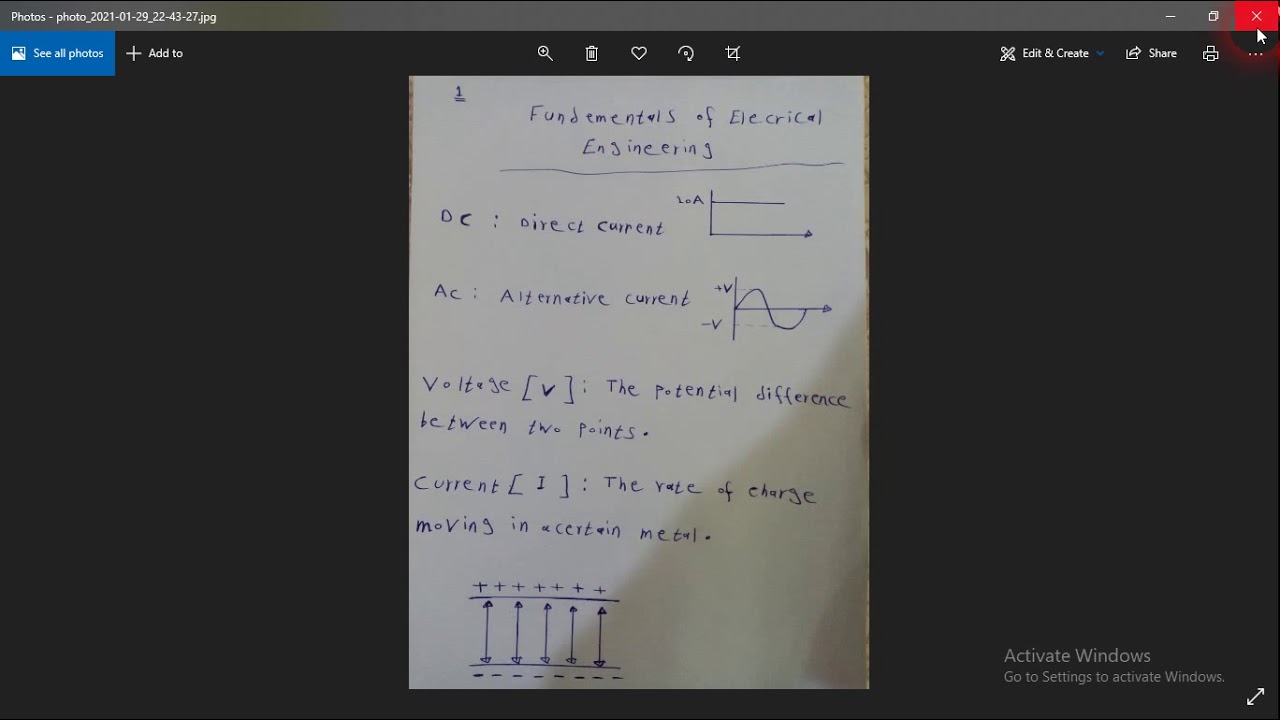 Photos - photo_2021-01-29_22-43-27.jpg
See all photos
Add to
Edit & Create
Share
1
Fundementals of Elecrical
Engineering
DC : Direct current
10A
AC : Alternative current
+V
-V
Voltage [V] : The potential difference
between two points.
Current [ I ] : The rate of charge
moving in a certain metal.
+ + + + + + +
- - - - - - - -
Activate Windows
Go to Settings to activate Windows.